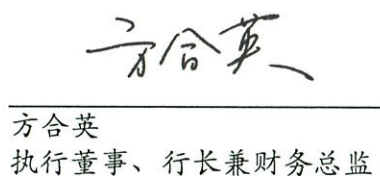 方合英
方合英
执行董事、行长兼财务总监